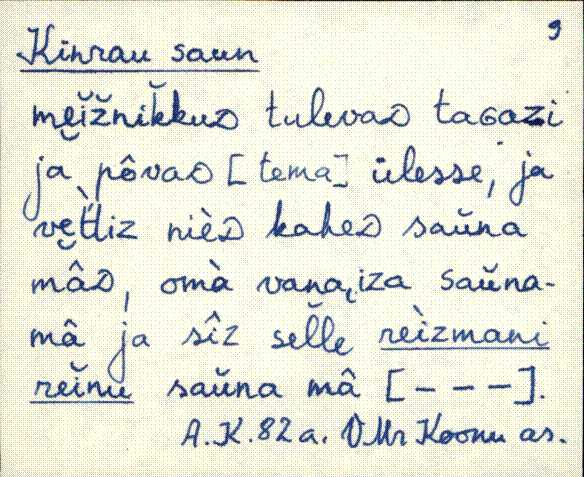 9
Kinrau saun
mĕižnikkuᴅ tulevaᴅ taɢazi
jǎ pôvaᴅ [tema] ülesse, ja
vet̀t̆iz nièᴅ kaheᴅ saŭna
mâᴅ, omà vana,iza saŭna-
mâ ja sîz sel̆le reìzmani
reĭnu saŭna mâ [– – –].
A.K. 82 a. VMr Koonu as.